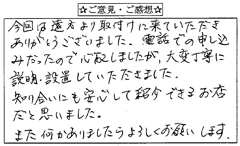 ☆ご意見・ご感想☆
今回は遠方より取付けに来ていただき
ありがとうございました。電話での申し込
みだったので心配しましたが、大変丁寧に
説明・設置していただきました。
知り合いにも安心して紹介できるお店
だと思いました。
また何かありましたらよろしくお願いします。